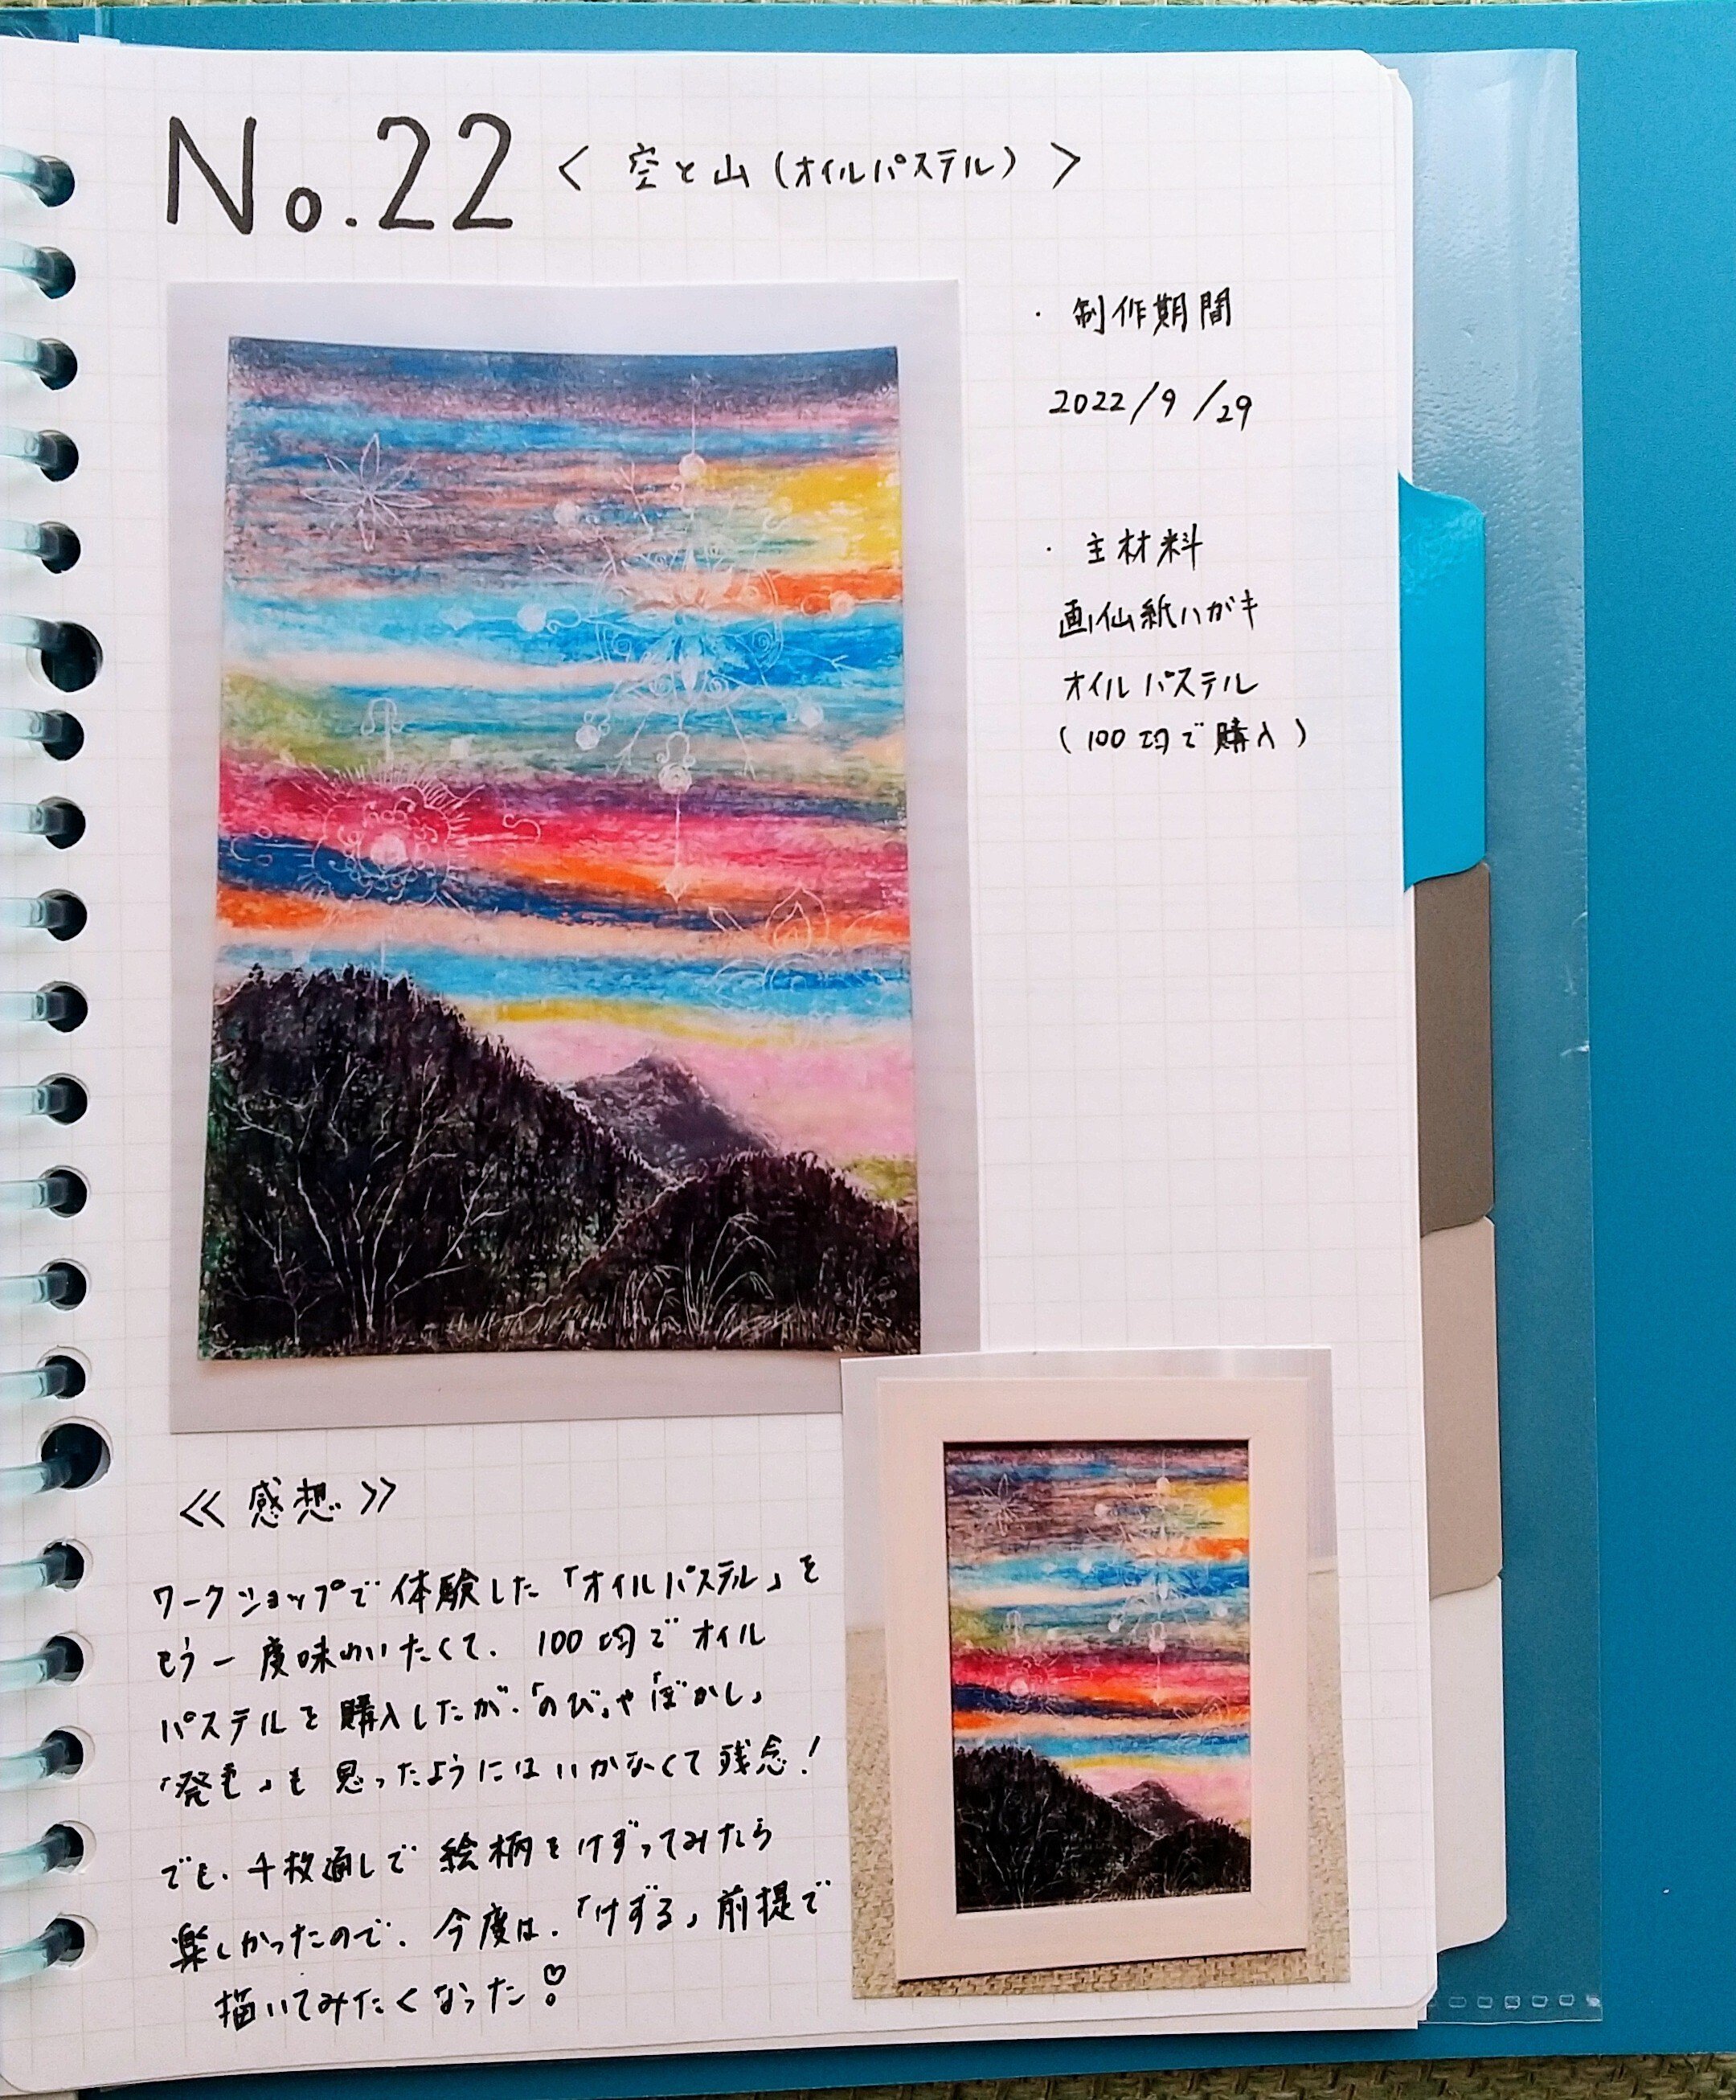 No.22 〈 空と山（オイルパステル）〉
・制作期間
2022/9/29
・主材料
画仙紙ハガキ
オイルパステル
（100均で購入）
≪ 感想 ≫
ワークショップで体験した「オイルパステル」を
もう一度味わいたくて、100均でオイル
パステルを購入したが、「のび」や「ぼかし」
「発色」も思ったようにはいかなくて残念！
でも、千枚通しで絵柄をけずってみたら
楽しかったので、今度は、「けずる」前提で
描いてみたくなった♡